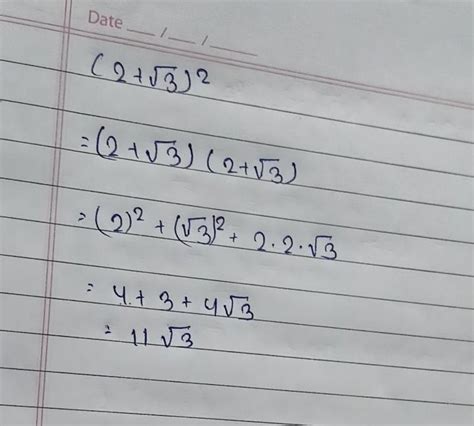 Date __/__/____
(2+√3)²
=(2+√3) (2+√3)
=(2)² + (√3)² + 2·2·√3
= 4 + 3 + 4√3
= 11√3